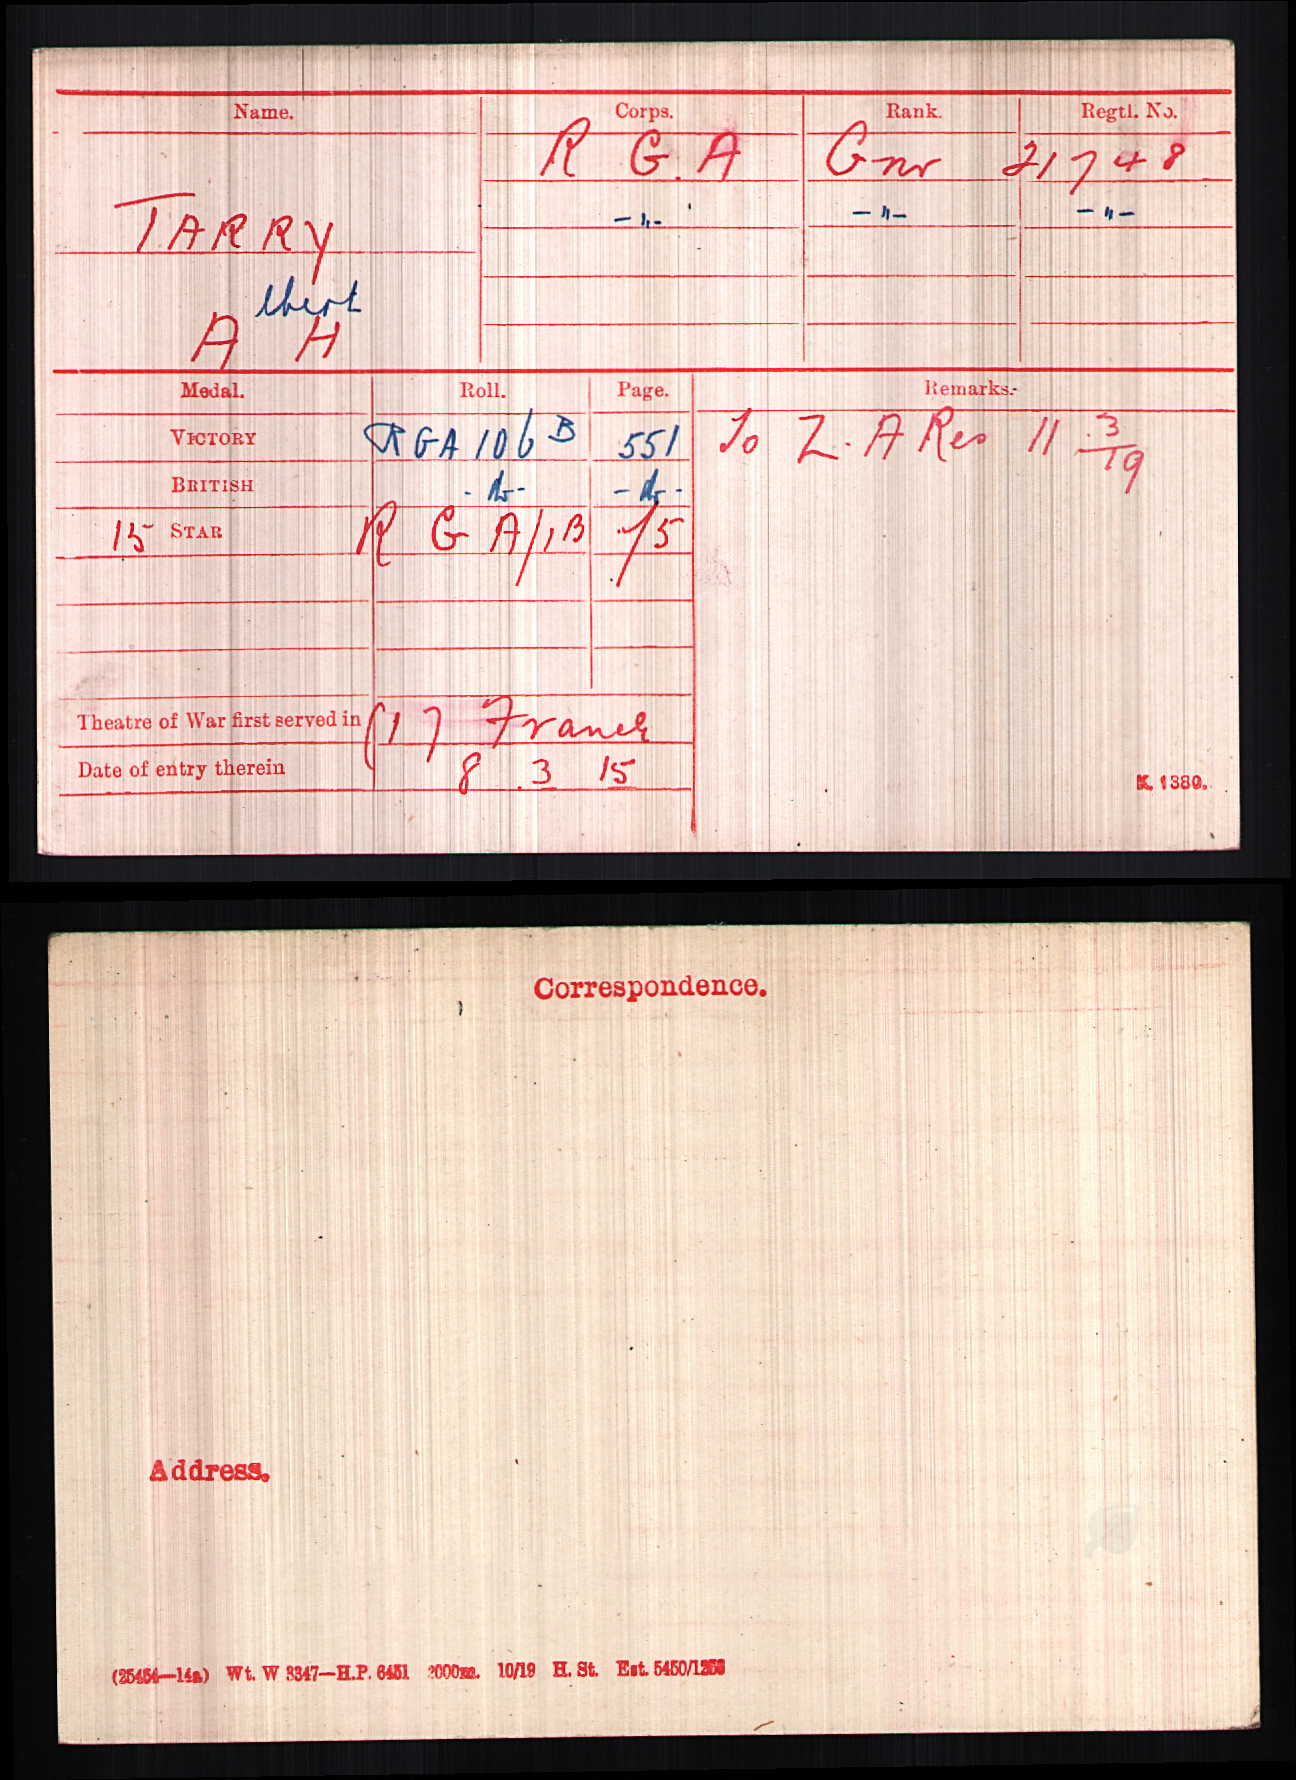 Name. Corps. Rank. Regtl. No.
R G. A Gnr 21748
TARRY -"- -"- -"-
lbert
A H
Medal. Roll. Page. Remarks.
VICTORY RGA 106 B 551 To Z. A Res 11 3/19
BRITISH - do - - do -
15 STAR R G A/1B 75
Theatre of War first served in (1) France
Date of entry therein 8 3 15
K. 1380.
Correspondence.
Address.
(25454—14a) Wt. W 3347—H.P. 6451 2000m. 10/19 H. St. Est. 5450/1250